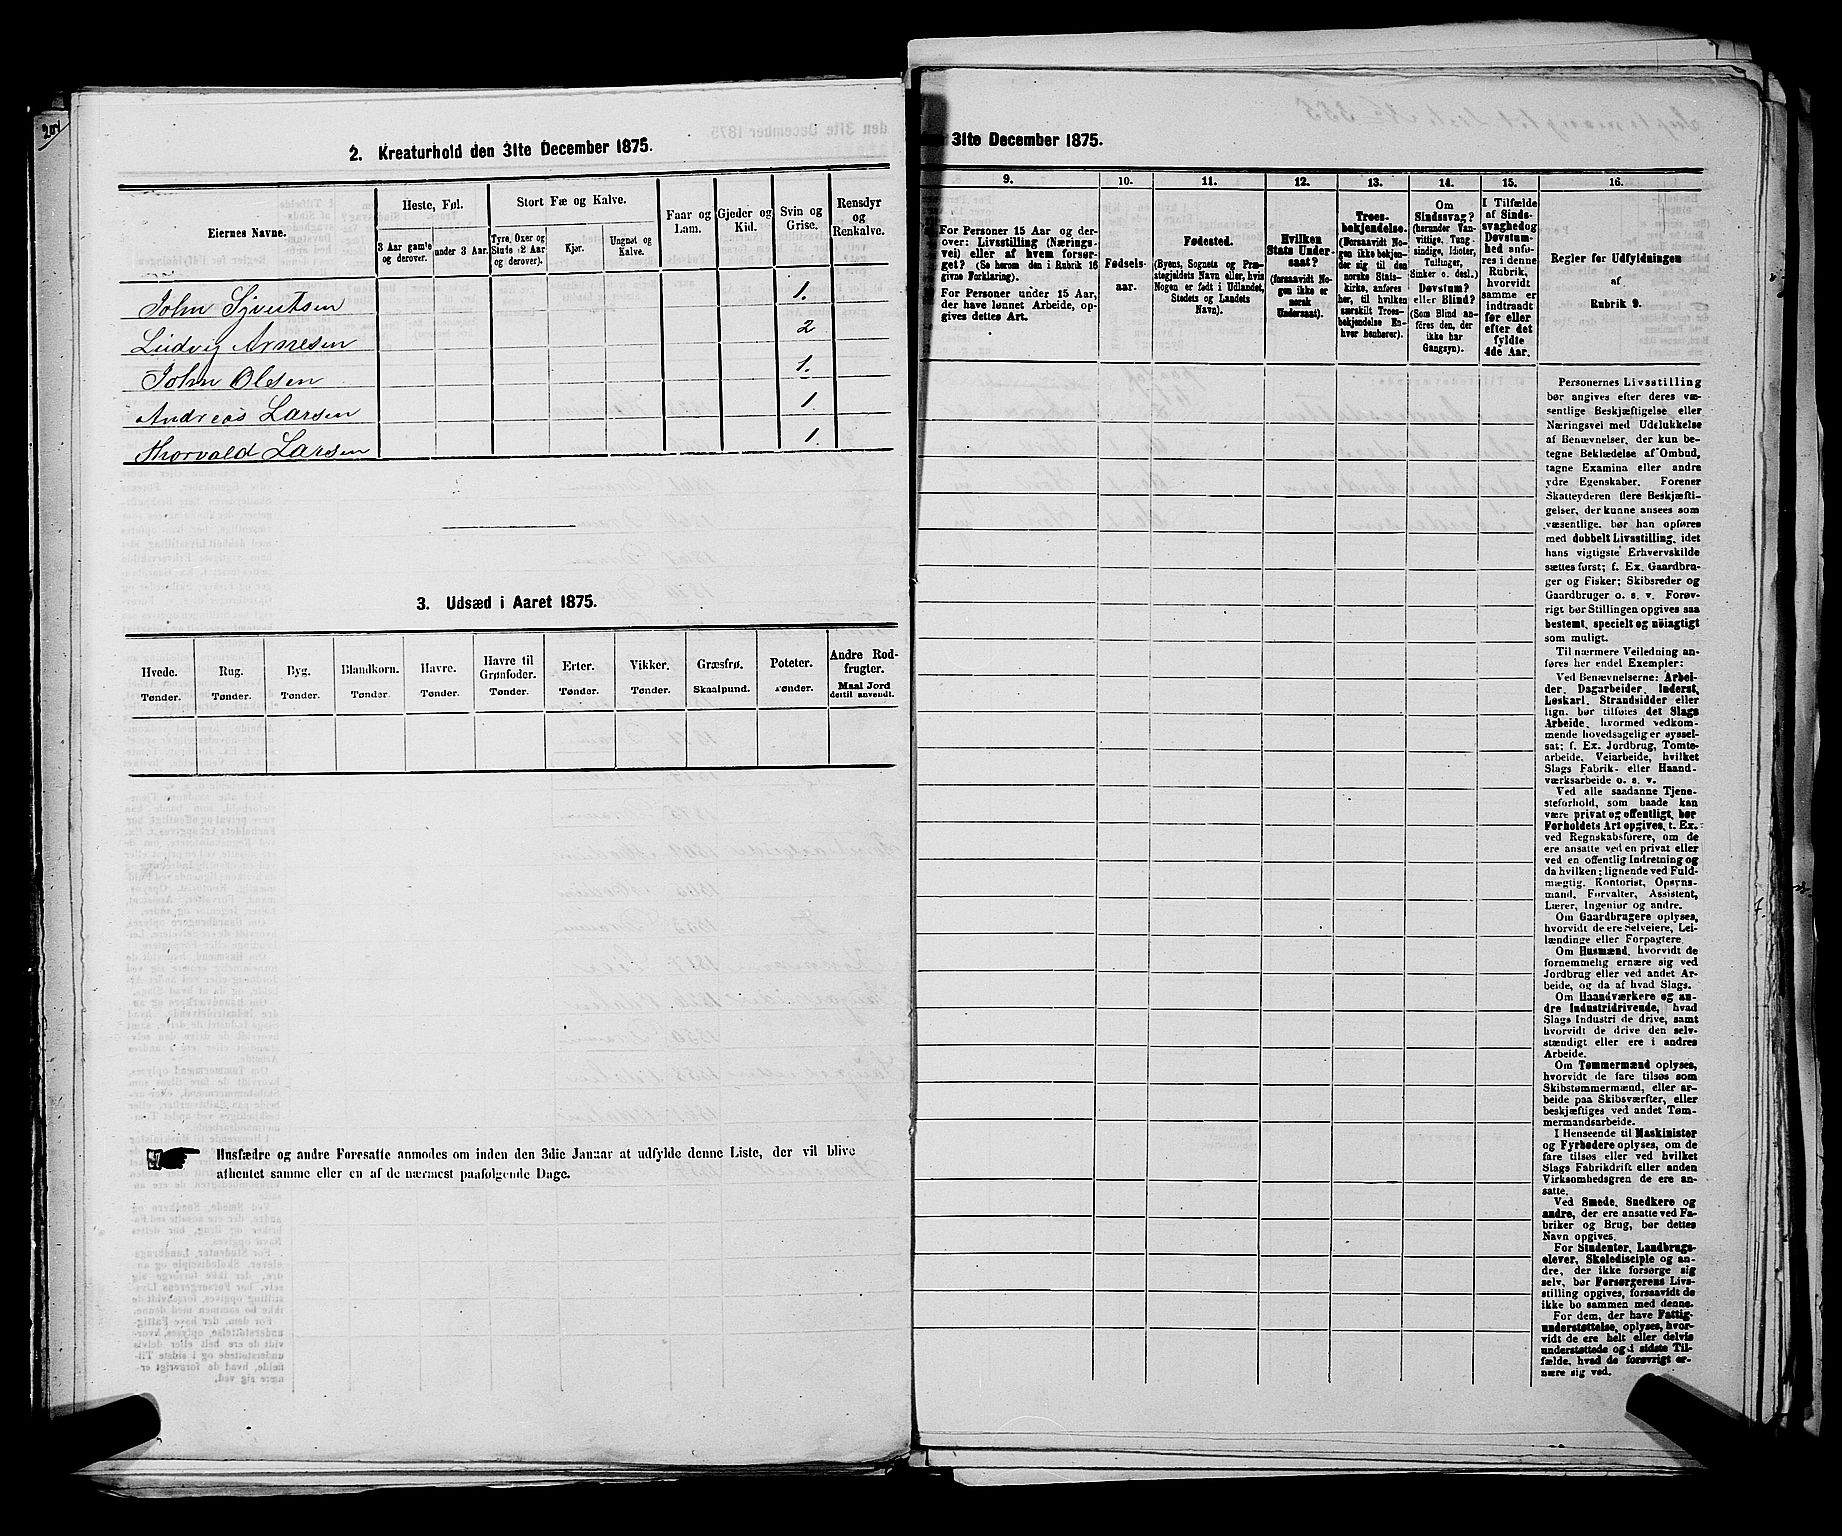 2. Kreaturhold den 31te December 1875.
Eiernes Navne.
Heste, Føl.
3 Aar gamle og derover.
under 3 Aar.
Stort Fæ og Kalve.
Tyre, Oxer og Stude (2 Aar og derover).
Kjør.
Ungnøt og Kalve.
Faar og Lam.
Gjeder og Kid.
Svin og Grise.
Rensdyr og Renkalve.
John Sjvertsen 1.
Ludvig Arnesen 2
John Olsen 1.
Andreas Larsen 1
Thorvald Larsen 1.
3. Udsæd i Aaret 1875.
Hvede. Tønder.
Rug. Tønder.
Byg. Tønder.
Blandkorn. Tønder.
Havre. Tønder.
Havre til Grønfoder. Tønder.
Erter. Tønder.
Vikker. Tønder.
Græsfrø. Skaalpund.
Poteter. Tønder.
Andre Rodfrugter. Maal Jord dertil anvendt.
Husfædre og andre Foresatte anmodes om inden den 3die Januar at udfylde denne Liste, der vil blive
afhentet samme eller en af de nærmest paafølgende Dage.
31te December 1875.
9.
For Personer 15 Aar og derover: Livsstilling (Næringsvei) eller af hvem forsørget? (Se herom den i Rubrik 16 givne Forklaring).
For Personer under 15 Aar, der have lønnet Arbeide, opgives dettes Art.
10.
Fødselsaar.
11.
Fødested.
(Byens, Sognets og Præstegjeldets Navn eller, hvis Nogen er født i Udlandet, Stedets og Landets Navn).
12.
Hvilken Stats Undersaat?
(forsaavidt Nogen ikke er norsk Undersaat).
13.
Troesbekjendelse.
(Forsaavidt Nogen ikke bekjender sig til den norske Statskirke, anføres her, til hvilken særskilt Troesbekjendelse Enhver henhører).
14.
Om Sindssvag? (herunder Vanvittige, Tungsindige, Idioter, Tullinger, Sinker o. desl.) Døvstum? eller Blind? (Som Blind anføres den, der ikke har Gangsyn).
15.
I Tilfælde af Sindssvaghed og Døvstumhed anføres i denne Rubrik, hvorvidt samme er indtraadt før eller efter det fyldte 4de Aar.
16.
Regler for Udfyldningen
af
Rubrik 9.
Personernes Livsstilling
bør angives efter deres væ-
sentlige Beskjæftigelse eller
Næringsvei med Udelukkelse
af Benævnelser, der kun be-
tegne Beklædelse af Ombud,
tagne Examina eller andre
ydre Egenskaber. Forener
Skatteyderen flere Beskjæfti-
gelser, der kunne ansees som
væsentlige, bør han opføres
med dobbelt Livsstilling, idet
hans vigtigste Erhvervskilde
sættes først; f. Ex. Gaardbru-
ger og Fisker; Skibsreder og
Gaardbruger o. s. v. Forøv-
rigt bør Stillingen opgives saa
bestemt, specielt og nøiagtigt
som muligt.
Til nærmere Veiledning an-
føres her endel Exempler:
Ved Benævnelserne: Arbei-
der, Dagarbeider, Inderst,
Løskarl, Strandsidder eller
lign. bør tilføies det Slags
Arbeide, hvormed vedkom-
mende hovedsagelig er syssel-
sat; f. Ex. Jordbrug, Tomte-
arbeide, Veiarbeide, hvilket
Slags Fabrik- eller Haand-
værksarbeide o. s. v.
Ved alle saadanne Tjene-
steforhold, som baade kan
være privat og offentligt, bør
Forholdets Art opgives, t. Ex.
ved Regnskabsførere, om de
ere ansatte ved en privat eller
ved en offentlig Indretning og
da hvilken; lignende ved Fuld-
mægtig, Kontorist, Opsyns-
mand, Forvalter, Assistent,
Lærer, Ingeniør og andre.
Om Gaardbrugere oplyses,
hvorvidt de ere Selveiere, Lei-
lændinge eller Forpagtere.
Om Husmænd, hvorvidt de
fornemmelig ernære sig ved
Jordbrug eller ved andet Ar-
beide, og da af hvad Slags.
Om Haandværkere og an-
dre Industridrivende, hvad
Slags Industri de drive, samt
hvorvidt de drive den selv-
stændigt eller ere i andres
Arbeide.
Om Tømmermænd oplyses,
hvorvidt de fare tilsøs som
Skibstømmermænd, eller ar-
beide paa Skibsværfter, eller
beskjæftiges ved andet Tøm-
mermandsarbeide.
I Henseende til Maskinister
og Fyrbødere oplyses, om de
fare tilsøs eller ved hvilket
Slags Fabrikdrift eller anden
Virksomhedsgren de ere an-
satte.
Ved Smede, Snedkere og
andre, der ere ansatte ved Fa-
briker og Brug, bør dettes
Navn opgives.
For Studenter, Landbrugs-
elever, Skoledisciple og an-
dre, der ikke forsørge sig
selv, bør Forsørgerens Livs-
stilling opgives, forsaavidt de
ikke bo sammen med denne.
For dem, der have Fattig-
understøttelse, oplyses, hvor-
vidt de ere helt eller delvis
understøttede og i sidste Til-
fælde, hvad de forøvrigt er-
nære sig ved.